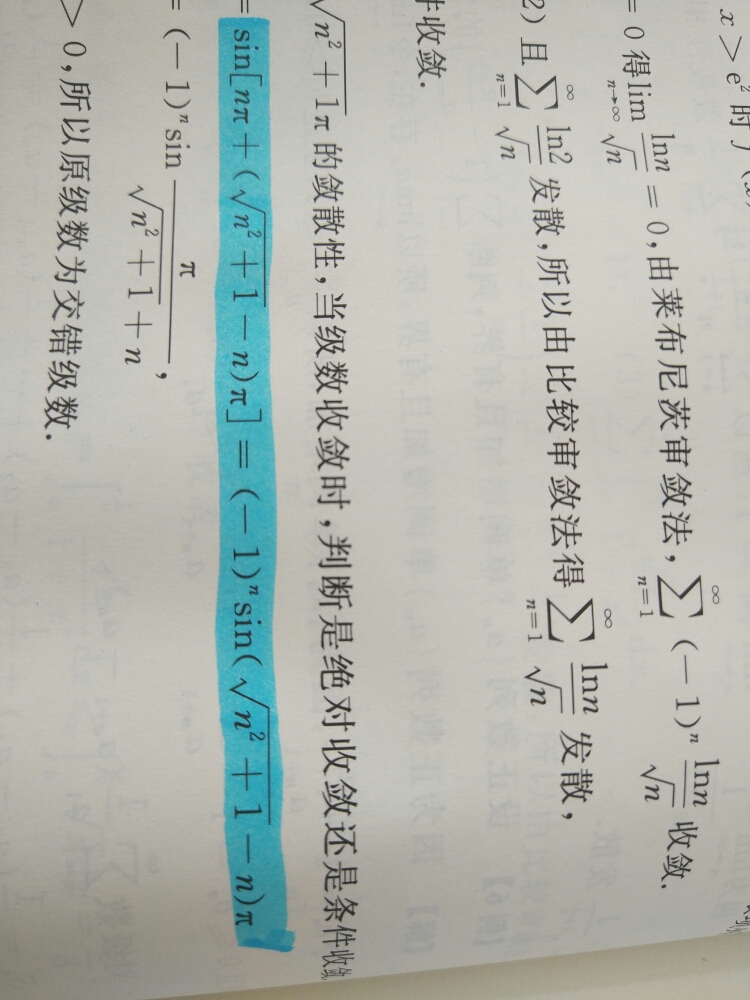 x > e² 时 f
= 0 得 lim_{n→∞} \frac{lnn}{\sqrt{n}} = 0,由莱布尼茨审敛法, \sum_{n=1}^{∞} (-1)^n \frac{lnn}{\sqrt{n}} 收敛.
2) 且 \sum_{n=1}^{∞} \frac{ln2}{\sqrt{n}} 发散,所以由比较审敛法得 \sum_{n=1}^{∞} \frac{lnn}{\sqrt{n}} 发散,
件收敛.
\sqrt{n^2+1}π 的敛散性,当级数收敛时,判断是绝对收敛还是条件收敛
= sin[nπ + (\sqrt{n^2+1} - n)π] = (-1)^n sin(\sqrt{n^2+1} - n)π
= (-1)^n sin \frac{π}{\sqrt{n^2+1}+n},
> 0,所以原级数为交错级数.